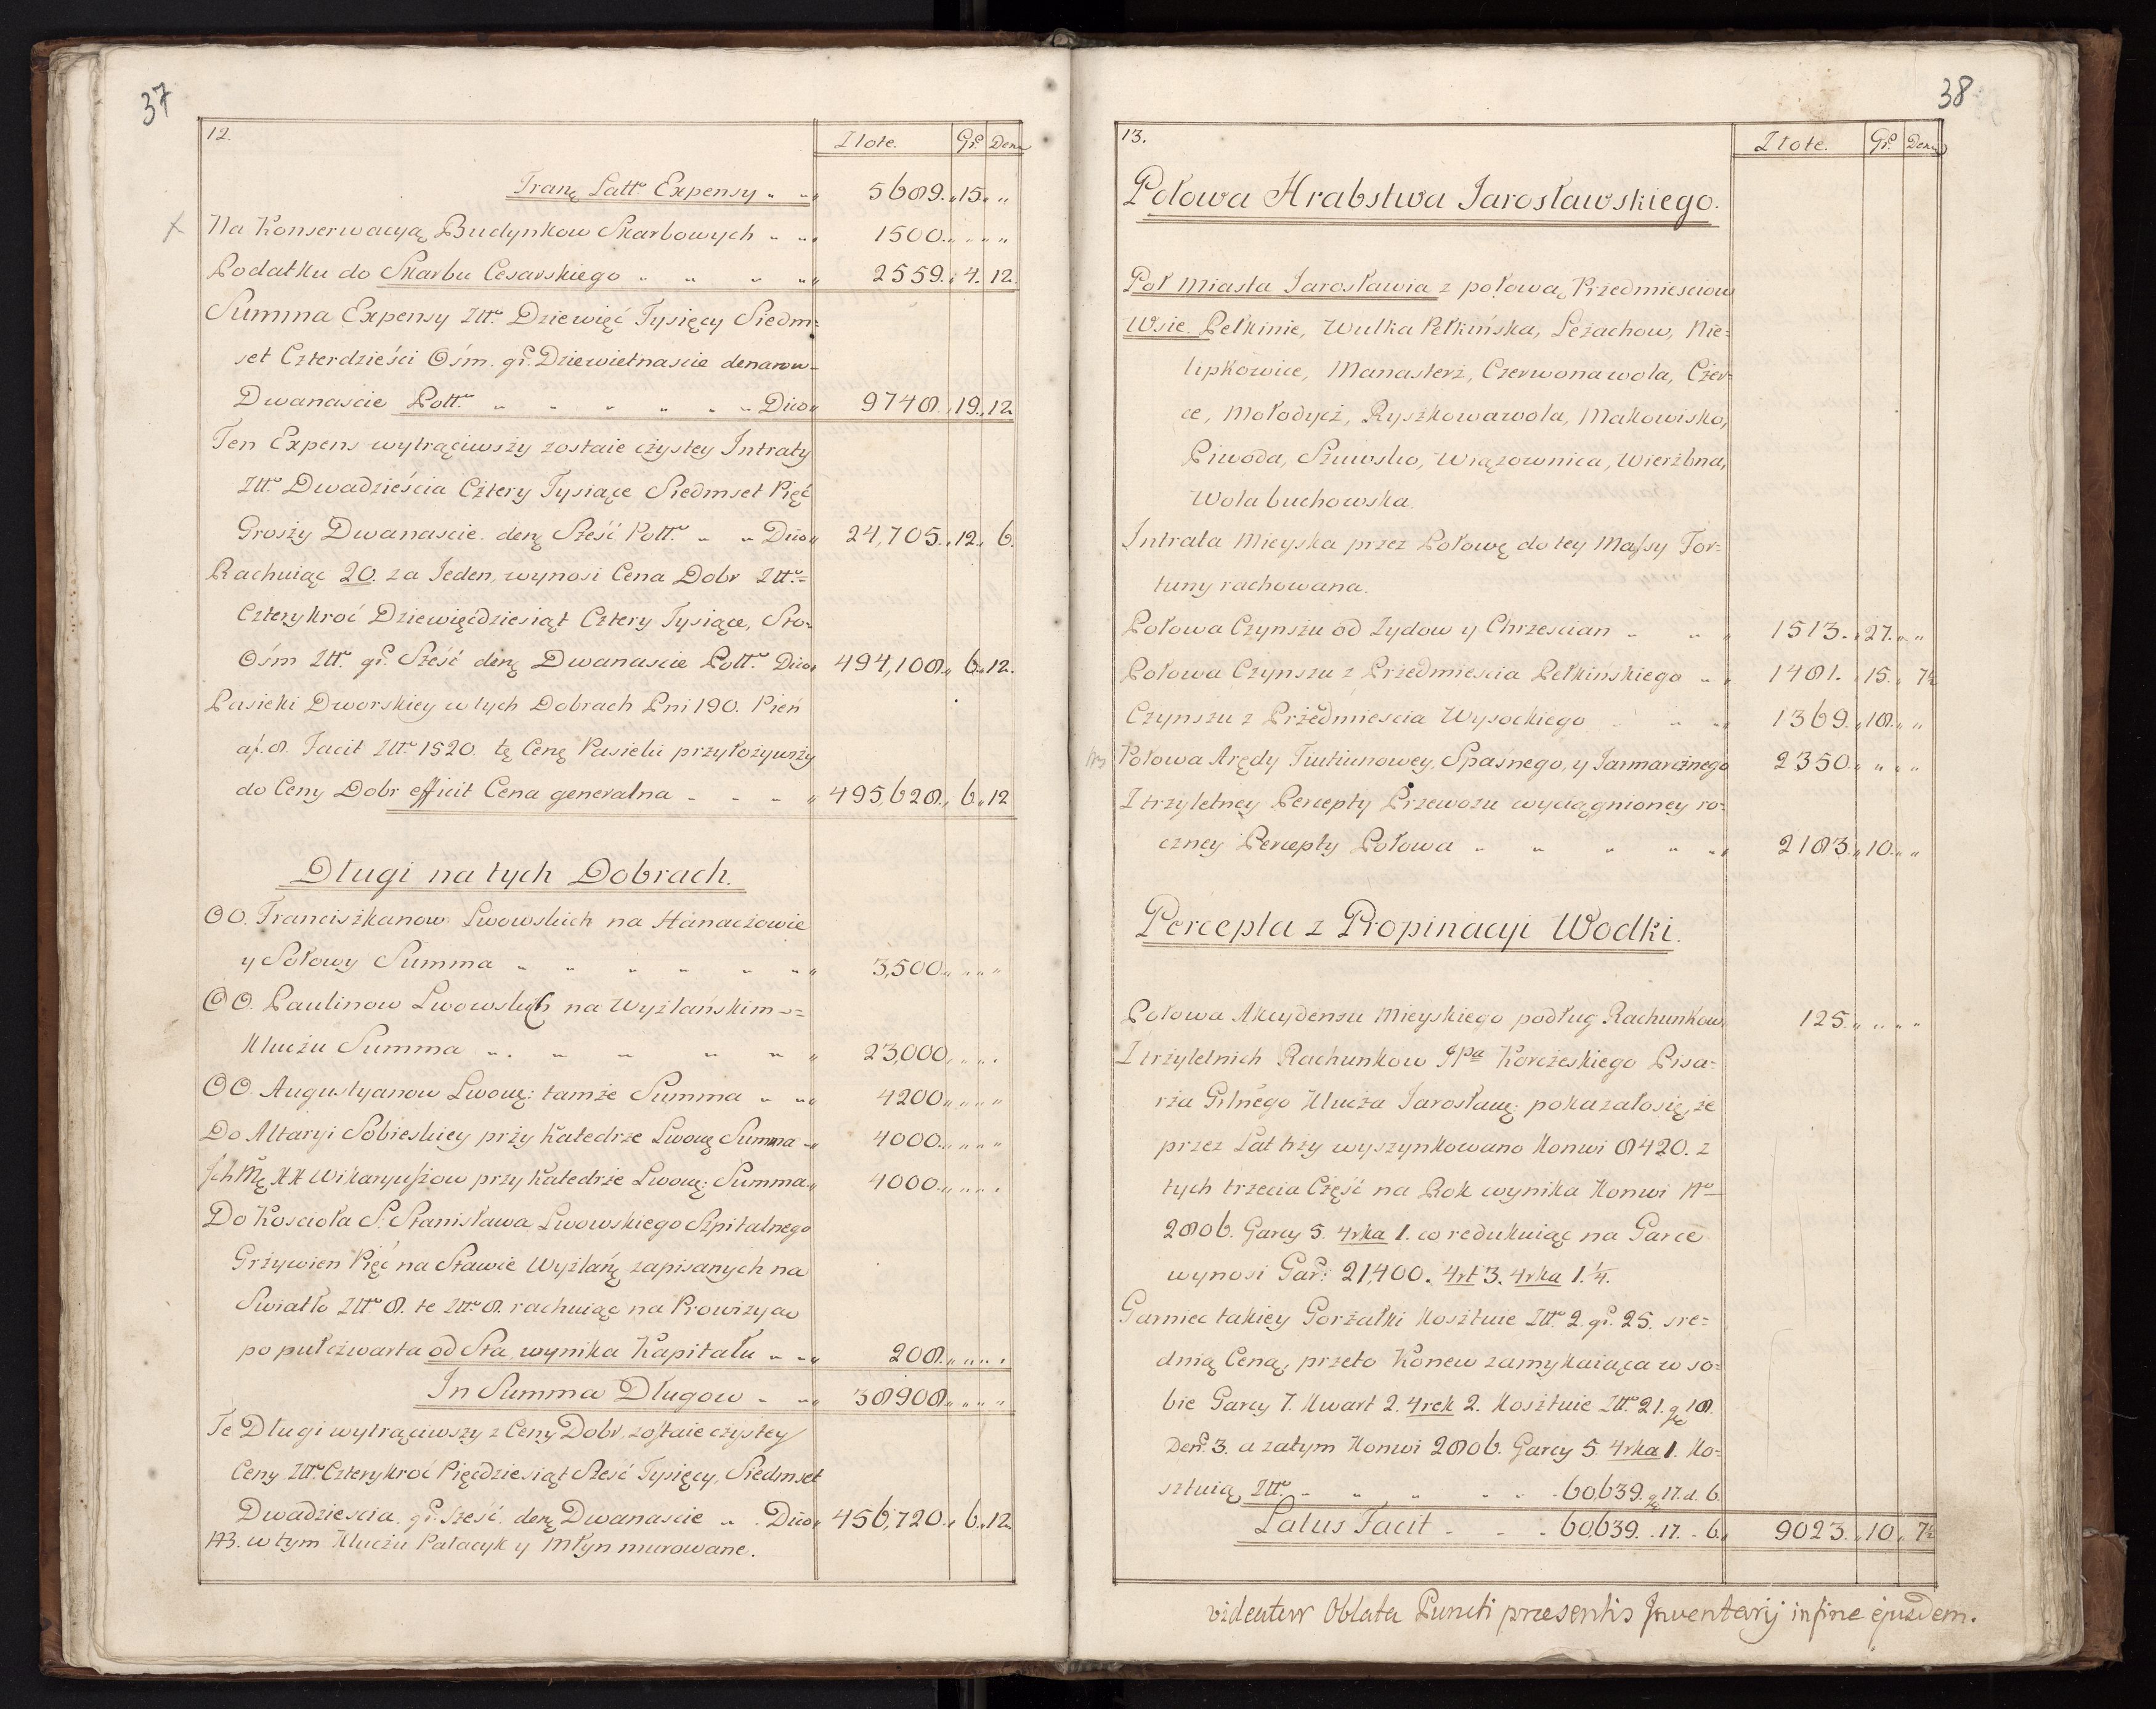 37
12.
Złote. Gr. Den.
Tranę Latt. Expensy 5689. 15.
Na Konserwacyą Budynkow Skarbowych 1500.
Podatku do Skarbu Cesarskiego 2559. 4. 12.
Summa Expensy Złt. Dziewięć Tysięcy Siedm=
set Czterdzieści Ośm. gr. Dziewietnascie denarow
Dwanascie Pott. Dico 9748. 19. 12
Ten Expens wytrąciwszy zostaie czystey Intraty
Złt. Dwadzieścia Cztery Tysiące Siedmset Pięć
Groszy Dwanascie. denę Sześć Pott. Dico 24,705. 12. 6.
Rachuiąc 20. za Jeden, wynosi Cena Dobr Złt.=
Czterykroć Dziewięćdziesiąt Cztery Tysiące, Sto=
Ośm Złt. gr. Sześć denę Dwanascie Pott. Dico 494,108. 6. 12.
Pasieki Dworskiey w tych Dobrach Pni 190. Pień
a f. 8. Facit Złt. 1520. tę Cenę Pasieki przyłożywszy
do Ceny Dobr efficit Cena generalna 495,628. 6. 12
Długi na tych Dobrach.
OO. Franciszkanow Lwowskich na Hanaczowie
y Sołowy Summa 3,500.
OO. Paulinow Lwowskich na Wyżłańskim=
Kluczu Summa 23,000
OO. Augustyanow Lwowę: tamże Summa 4200
Do Altaryi Sobieskiey przy Katedrze Lwowę Summa 4000.
KK Wikaryuszow przy Katedrze Lwowę: Summa 4000.
Do Koscioła S. Stanisława Lwowskiego Szpitalnego
Grzywien Pięć na Stawie Wyżłańę zapisanych na
Swiatło Złt. 8. te Złt. 8. rachuiąc na Prowizyą
po pułczwarta od Sta wynika Kapitału 208.
In Summa Długow 38908
Te Długi wytrąciwszy z Ceny Dobr, zostaie czystey
Ceny Złt. Czterykroć Pięćdziesiąt Sześć Tysięcy, Siedmset
Dwadziescia. gr. Sześć. denę Dwanascie Dico 456,720. 6. 12.
NB. w tym Kluczu Pałacyk y Młyn murowane.
38
13.
Złote. Gr. Den.
Połowa Hrabstwa Jarosławskiego.
Poł Miasta Jarosławia z połową Przedmiesciow
Wsie. Pełkinie, Wulka Pełkińska, Leżachow, Nie=
lipkowice, Manasterz, Czerwonawola, Czer=
ce, Mołodycz, Ryszkowawola, Makowisko,
Piwoda, Szuwsko, Wiązownica, Wierzbna,
Wola buchowska.
Intrata Mieyska przez Połowę do tey Massy For=
tuny rachowana.
Połowa Czynszu od Zydow y Chrzescian 1513. 27.
Połowa Czynszu z Przedmiescia Pełkińskiego 1481. 15. 7½
Czynszu z Przedmiescia Wysockiego 1369. 18.
NB Połowa Arędy Tiutiunowey, Spaśnego, y Jarmarcznego 2350.
Z trzyletney Percepty Przewozu wyciągnioney ro=
czney Percepty Połowa 2183. 10.
Percepta z Propinacyi Wodki.
Połowa Akcydensu Mieyskiego podług Rachunkow 125.
Z trzyletnich Rachunkow JPa Korczeskiego Pisa=
rza Grlnego Klucza Jarosławę: pokazało się, że
przez Lat trzy wyszynkowano Konwi 8420. z
tych trzecia Część na Rok wynika Konwi No
2806. Garcy 5. 4rka 1. co redukuiąc na Garce
wynosi Gar: 21,400. 4rt 3. 4rka 1. ¼.
Garniec takiey Gorzałki kosztuie Złt. 2. gr. 25. sre=
dnią Ceną, przeto Konew zamykaiąca w so=
bie Garcy 7. Kwart 2. 4rek 2. kosztuie Złt. 21. gr 18.
Den. 3. a zatym Konwi 2806. Garcy 5. 4rka 1. ko=
sztuią Złt. 60,639. gr 17. d. 6.
Latus Facit 60,639. 17. 6. 9023. 10. 7½
videatur Oblata Puncti præsentis Inventarij in fine ejusdem.